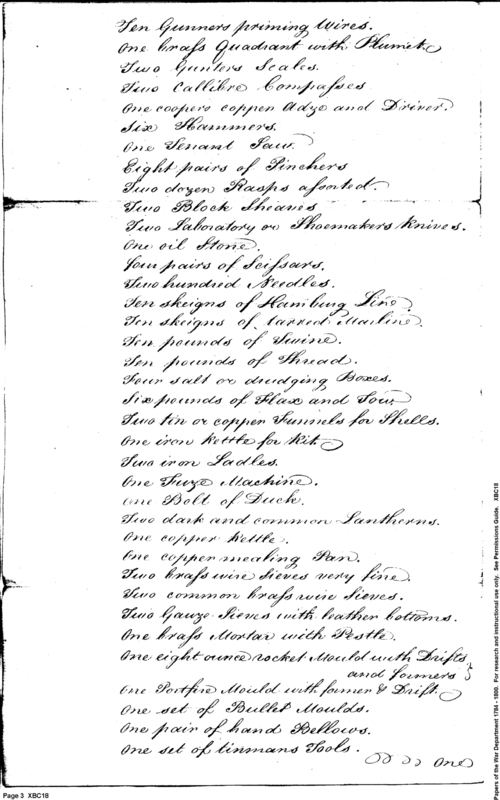 Ten Gunners priming Wires.
One brass Quadrant with Plumet.
Two Gunters Scales.
Two Callibre Compasses
One coopers copper Adze and Driver.
Six Hammers.
One Tenant Saw.
Eight pairs of Pinchers
Two dozen Rasps assorted.
Two Block Sheaves
Two Laboratory or Shoemakers Knives.
One oil Stone.
four pairs of Scissars.
Two hundred Needles.
Ten skeigns of Hamburg Line.
Ten skeigns of tarred Marline.
Ten pounds of Twine.
Ten pounds of Thread.
Four salt or drudging Boxes.
Six pounds of Flax and Tow
Two tin or copper Funnels for Shells.
One iron Kettle for Kit.
Two iron Ladles.
One Fuze Machine.
One Bolt of Duck.
Two dark and common Lantherns.
One copper Kettle.
One copper mealing Pan.
Two brass wire Sieves very fine.
Two common brass wire Sieves.
Two Gauze Sieves with leather bottoms.
One brass Mortar with Pestle.
One eight ounce rocket Mould with Drifts
and formers
One Portfire Mould with former & Drift.
One set of Bullet Moulds.
One pair of hand Bellows.
One set of tinmans Tools.
One
Page 3 XBC18
Papers of the War Department 1784 - 1800. For research and instructional use only. See Permissions Guide. XBC18